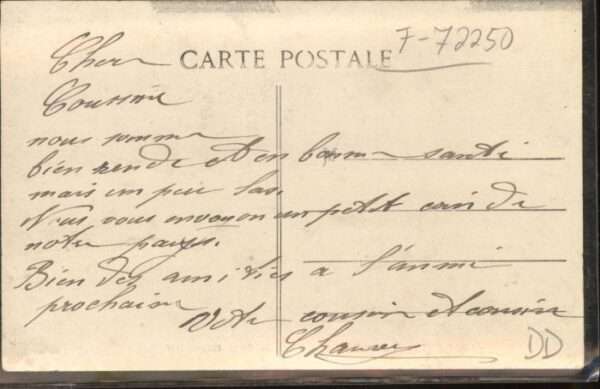 F-72250
CARTE POSTALE
Cher
Coussine
nous somme
bien rendu et en bonne santé
mais un peu las.
Nous vous envoyon un petit coin de
notre pays.
Bien des amitiés a l'anné
prochaine
Votre cousin et cousine
DD